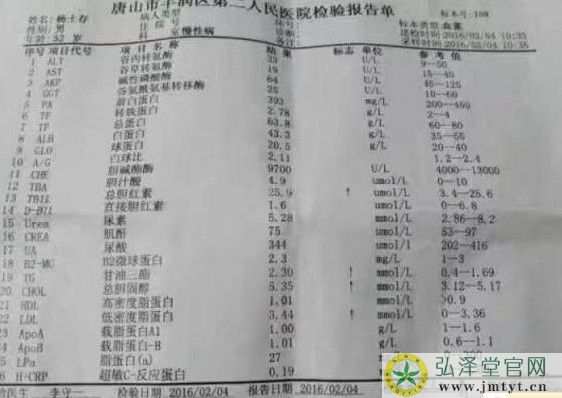 唐山市丰润区第二人民医院检验报告单
标本号：159
性别：男
年龄：52 岁
慢性病
标本类型：血浆
送检时间2016/02/04 10:35
采样时间2016/02/04 10:35
序号 项目代号 项目名称 结果 标志 单位 参考值
1 ALT 谷丙转氨酶 33 U/L
2 AST 谷草转氨酶 19 U/L 15—40
3 AKP 碱性磷酸酶 64 U/L
4 GGT 谷氨酰氨基转移酶 25 U/L 10—60
5 PA 前白蛋白 393 mg/L 200—450
6 TF 转铁蛋白 2.78 g/L 2—4
7 TP 总蛋白 63.8 g/L 60—80
8 ALB 白蛋白 43.3 g/L 35—55
9 GLO 球蛋白 20.5 g/L 20—40
10 A/G 白球比 2.11 1.2—2.4
11 CHE 胆碱酯酶 9700 U/L 4000—13000
12 TBA 胆汁酸 4.9 umol/L 0—10
13 TBIL 总胆红素 25.9 ↑ umol/L 3.4—25.6
14 D-Bil 直接胆红素 1.6 umol/L 0—6.8
15 Urea 尿素 5.28 mmol/L 2.86—8.2
16 CREA 肌酐 75 umol/L 53—97
17 UA 尿酸 344 umol/l 202—416
18 B2-MG B2微球蛋白 2.3 mg/L 1—3
19 TG 甘油三酯 2.30 ↑ mmol/L 0.4—1.69
20 CHOL 总胆固醇 5.35 ↑ mmol/L 3.12—5.17
21 HDL 高密度脂蛋白 1.01 mmol/L >0.9
22 LDL 低密度脂蛋白 3.44 ↑ mmol/L 0—3.36
23 ApoA 载脂蛋白A1 1.00 g/L 1—1.6
24 ApoB 载脂蛋白-B 1.01 g/L 0.6—1.1
25 LPa 脂蛋白(a) 27
26 H-CRP 超敏C-反应蛋白 0.19
检验日期 2016/02/04 报告日期 2016/02/04
弘泽堂官网
www.jmtyt.cn